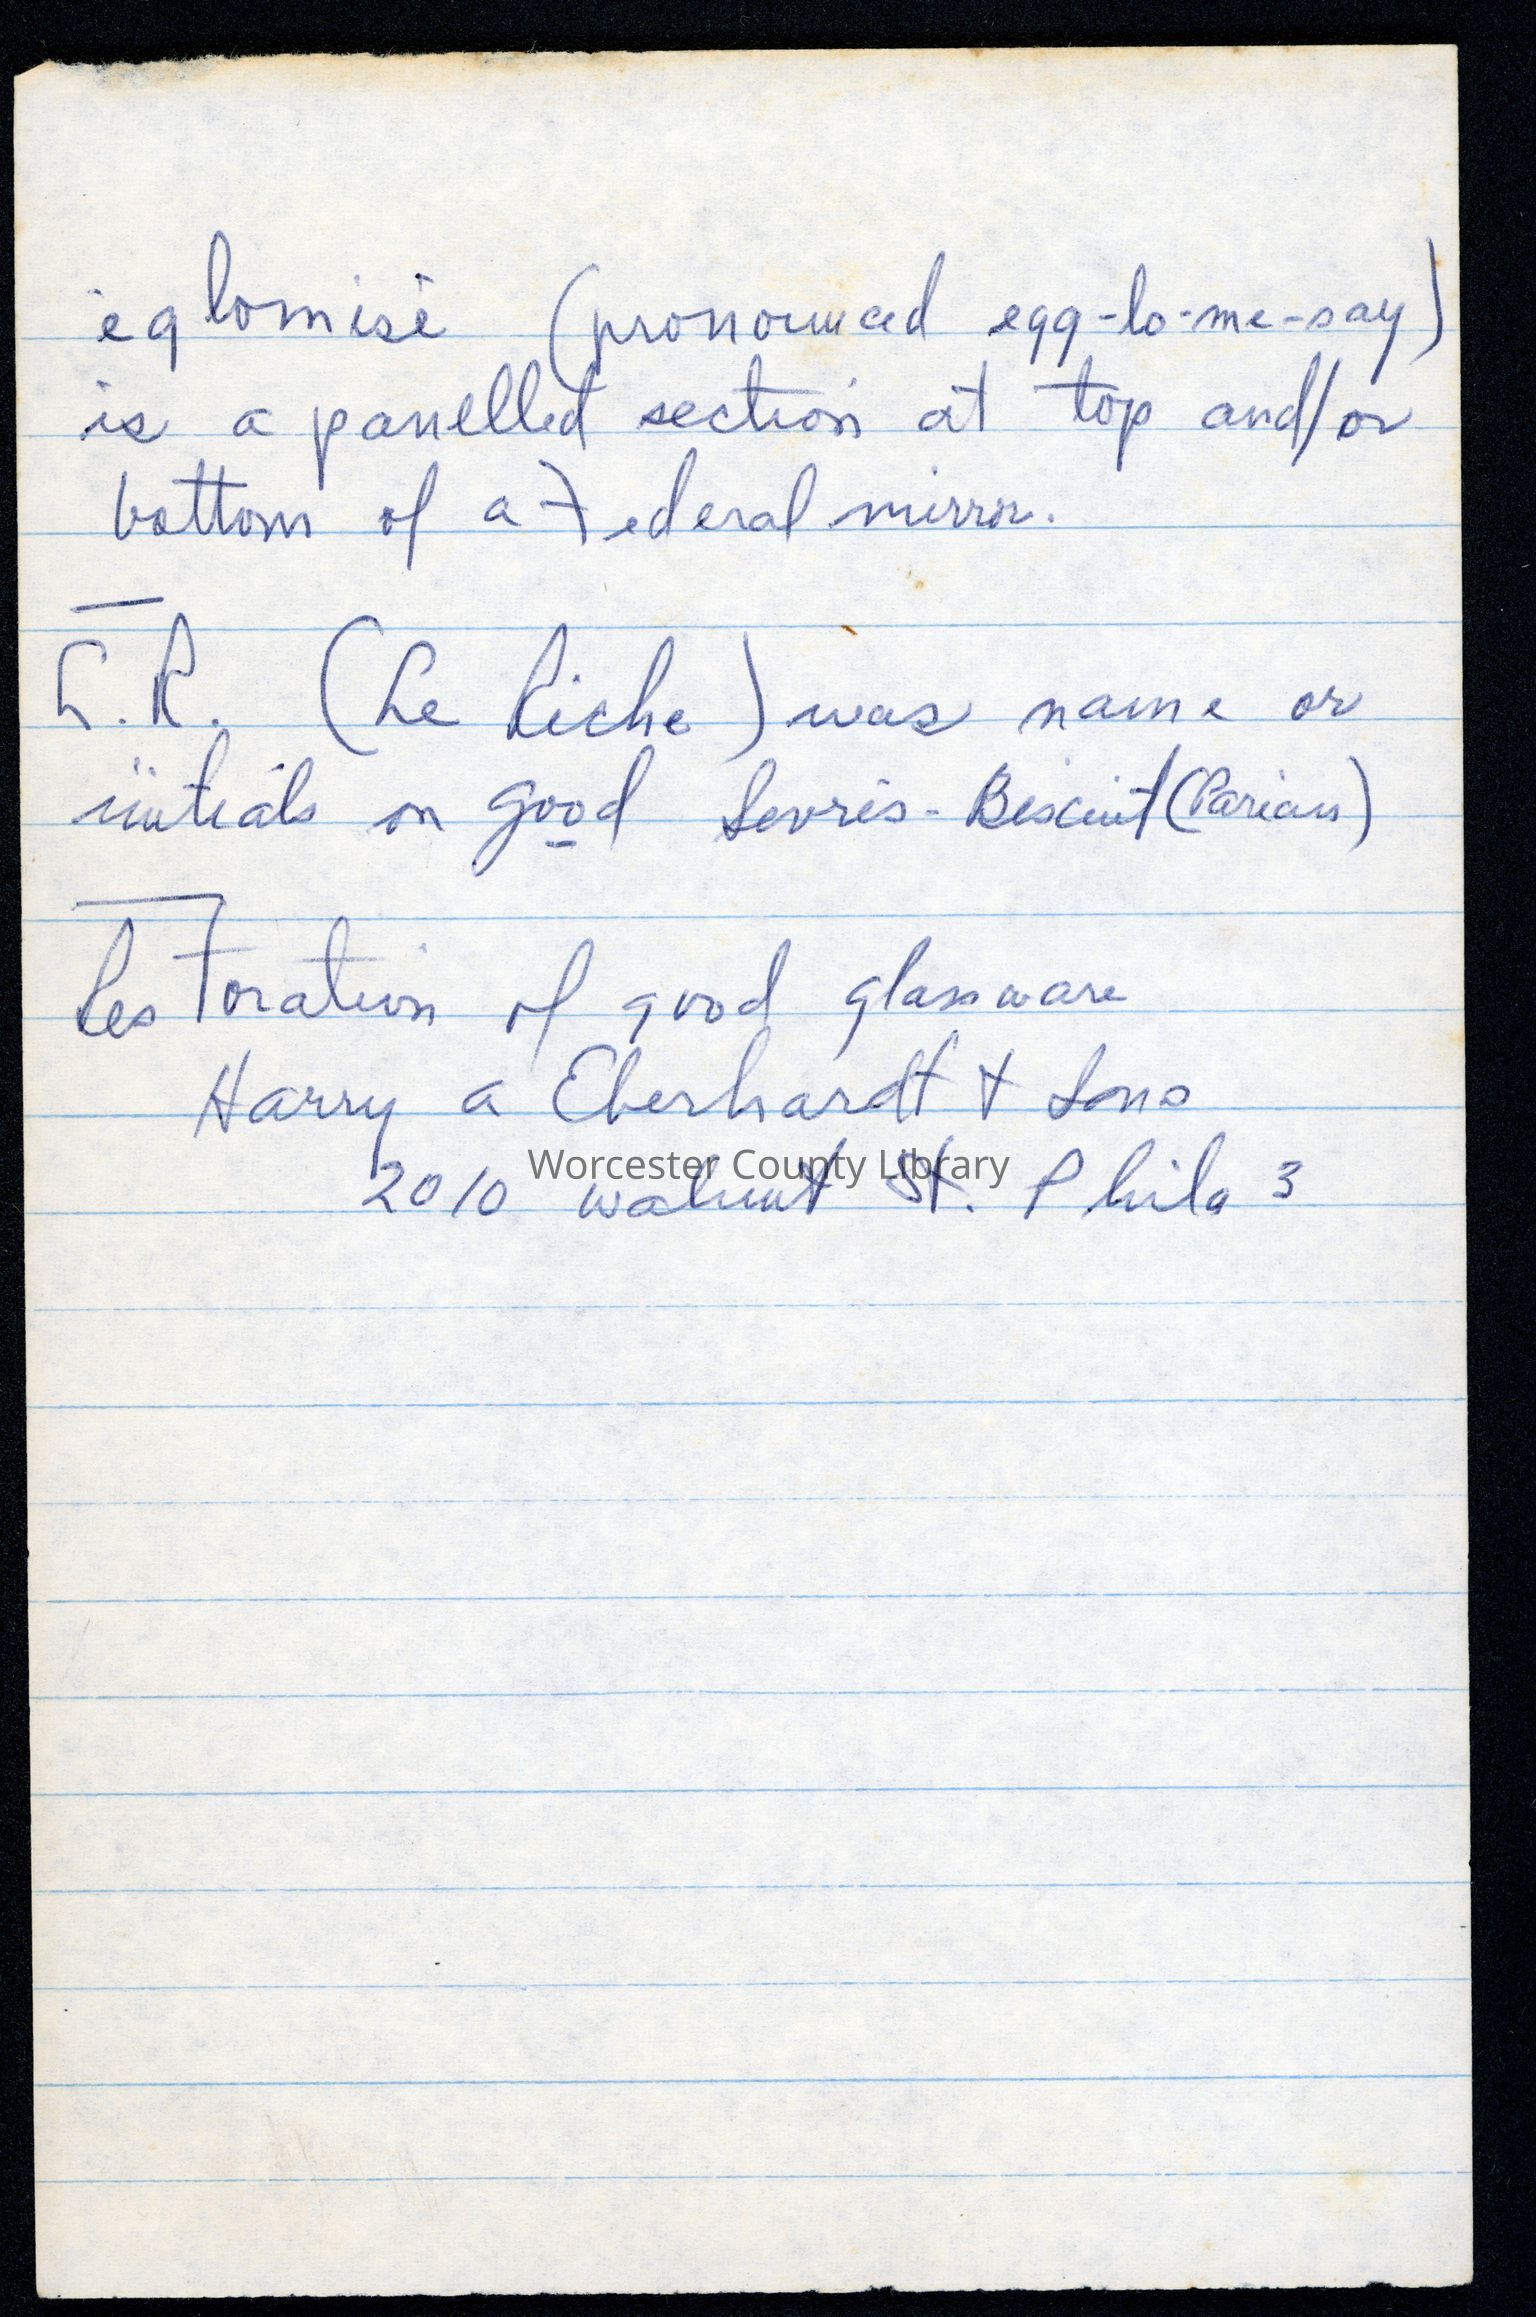 églomisé (pronounced egg-lo-me-say)
is a panelled section at top and/or
bottom of a Federal mirror.
L.R. (Le Riche) was name or
initials on good Sevrés - Biscuit (Parian)
Restoration of good glassware
Harry a Eberhardt + Sons
Worcester County Library
2010 walnut St. Phila 3